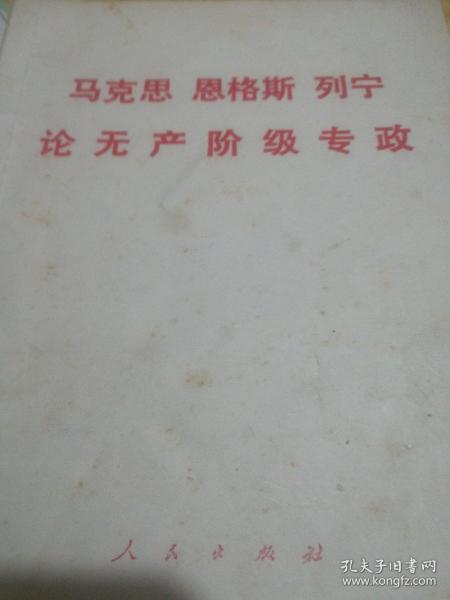 马克思 恩格斯 列宁
论无产阶级专政
人民出版社
孔夫子旧书网
www.kongfz.com